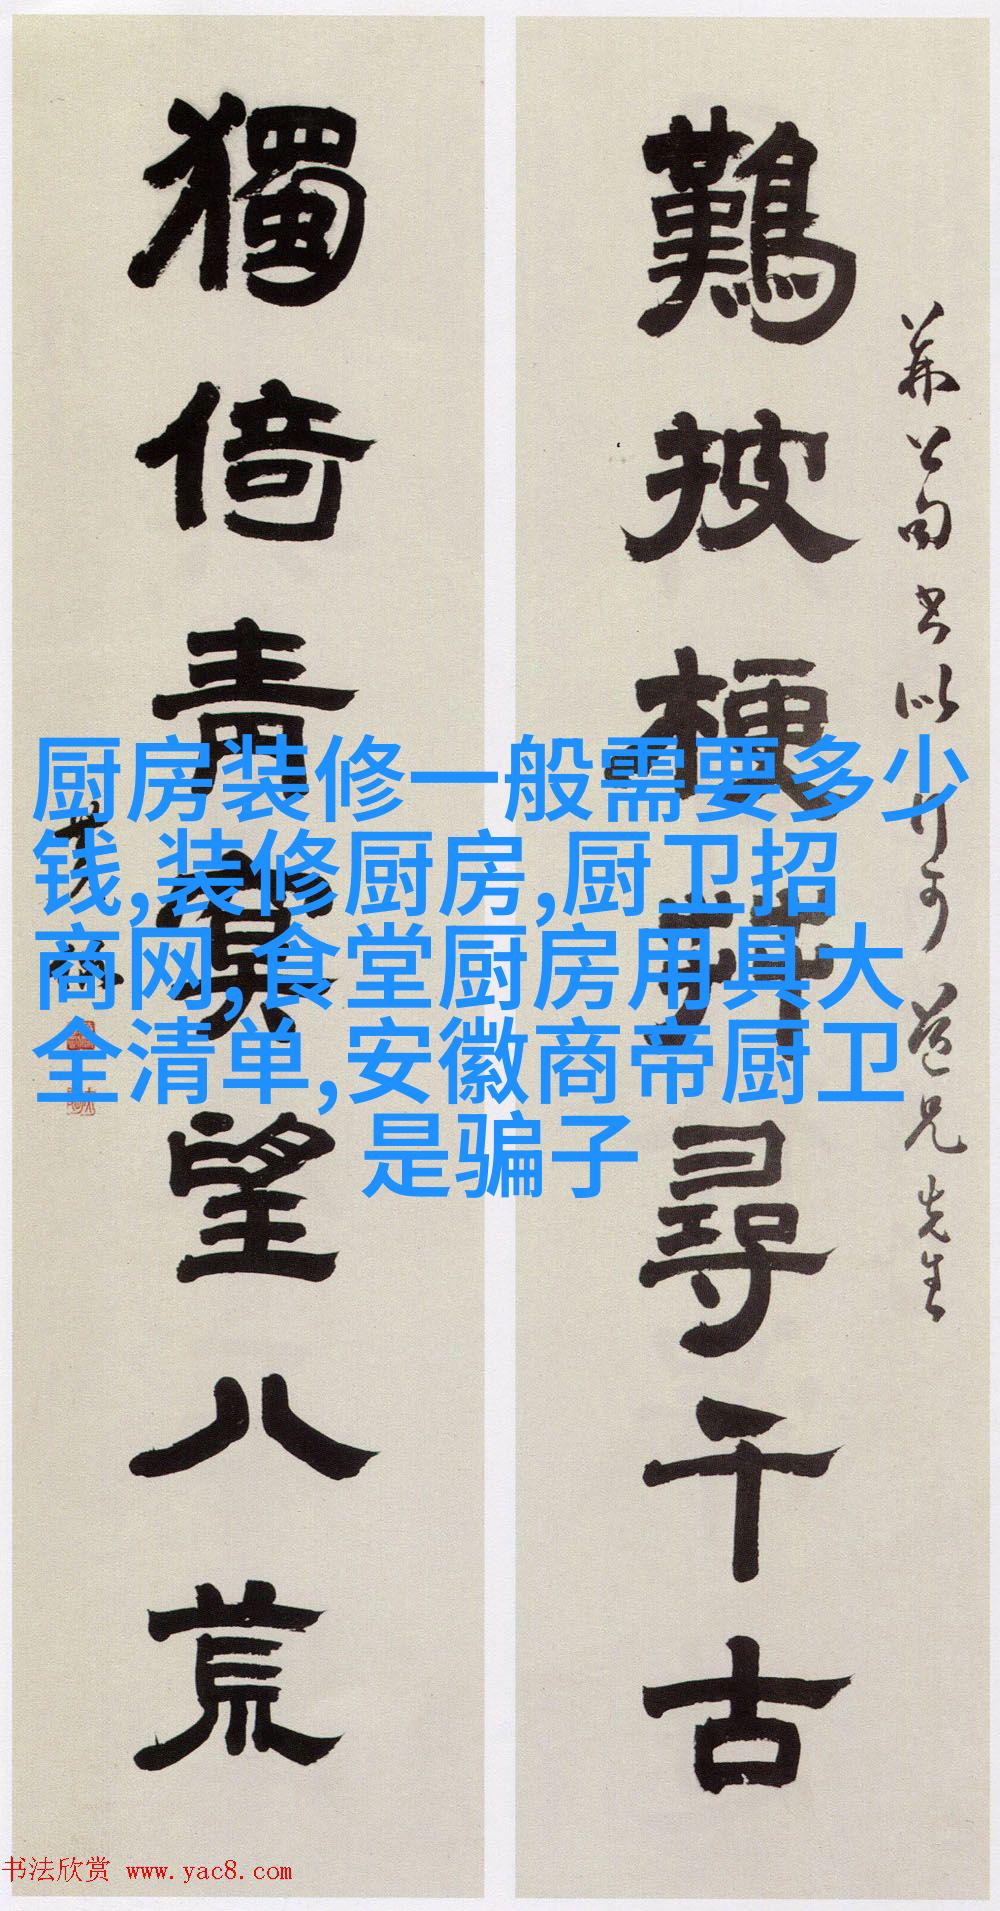 荊公句書似行可道兄先生
難披梗尋千古
獨倚青冥望八荒
厨房装修一般需要多少
钱,装修厨房,厨卫招
商网,食堂厨房用具大
全清单,安徽商帝厨卫
是骗子
书法欣赏 www.yac8.com